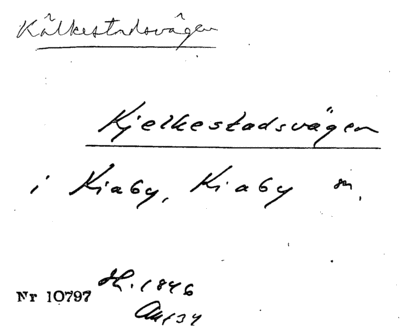 Kälkestadsvägen
Kjelkestadsvägen
i Kiaby, Kiaby sn.
Nr 10797 Sk. 1846